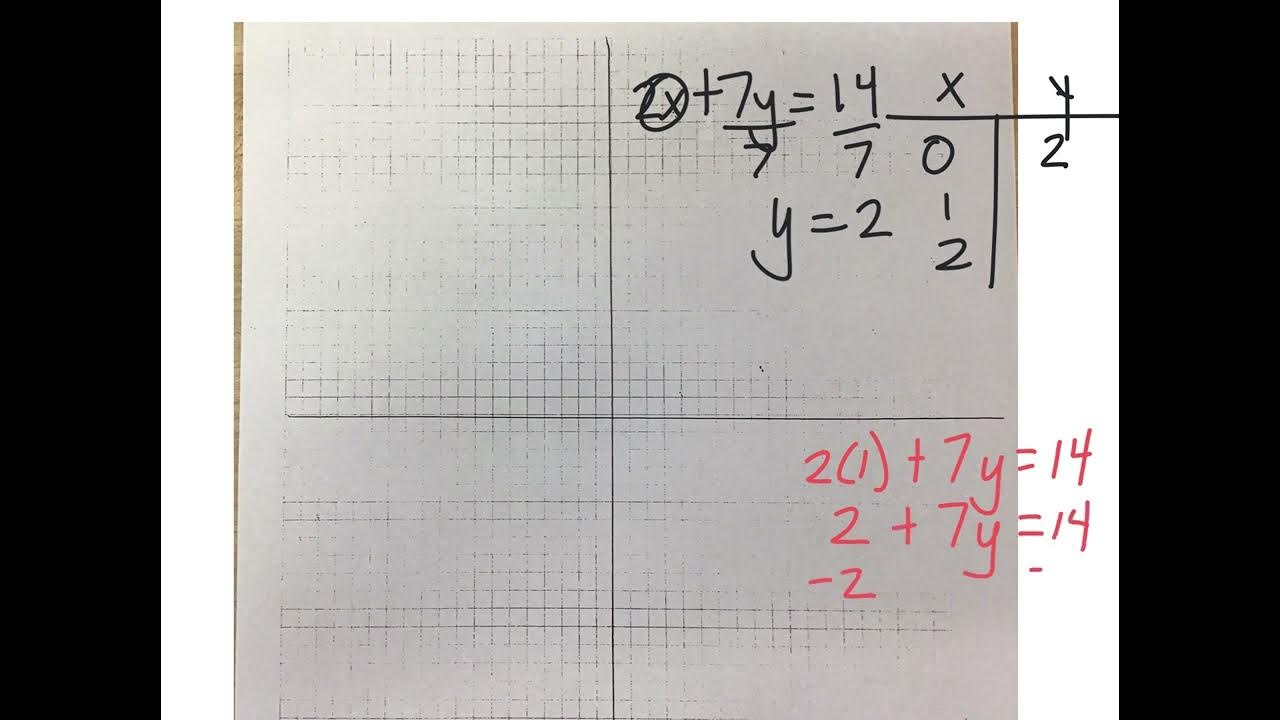 2x + 7y = 14
7 7
y = 2
x y
0 2
1
2
2(1) + 7y = 14
2 + 7y = 14
-2 -